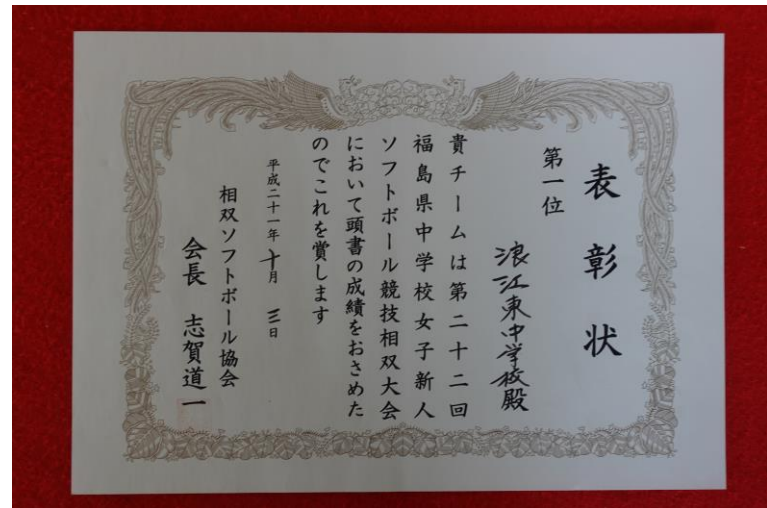 表彰状
第一位
浪江東中学校殿
貴チームは第二十二回
福島県中学校女子新人
ソフトボール競技相双大会
において頭書の成績をおさめた
のでこれを賞します
平成二十一年十月三日
相双ソフトボール協会
会長 志賀道一